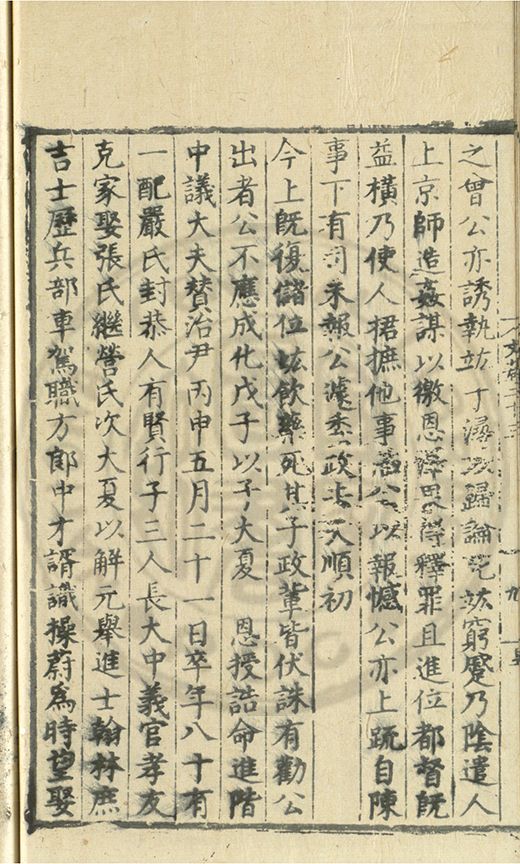 之曾公亦誘執竑于潯以歸論死竑窮蹙乃陰遣人
上京師造姦謀以徼恩澤果得釋罪且進位都督既
益橫乃使人捃摭他事以報憾公亦上疏自陳
事下有司未報公遽委政去天順初
今上既復儲位竑飲藥死其子政輩皆伏誅有勸公
出者公不應成化戊子以子大夏 恩授誥命進階
中議大夫贊治尹丙申五月二十一日卒年八十有
一配嚴氏封恭人有賢行子三人長大中義官孝友
克家娶張氏繼營氏次大夏以解元舉進士翰林庶
吉士歷兵部車駕職方郎中才諝識操蔚為時望娶